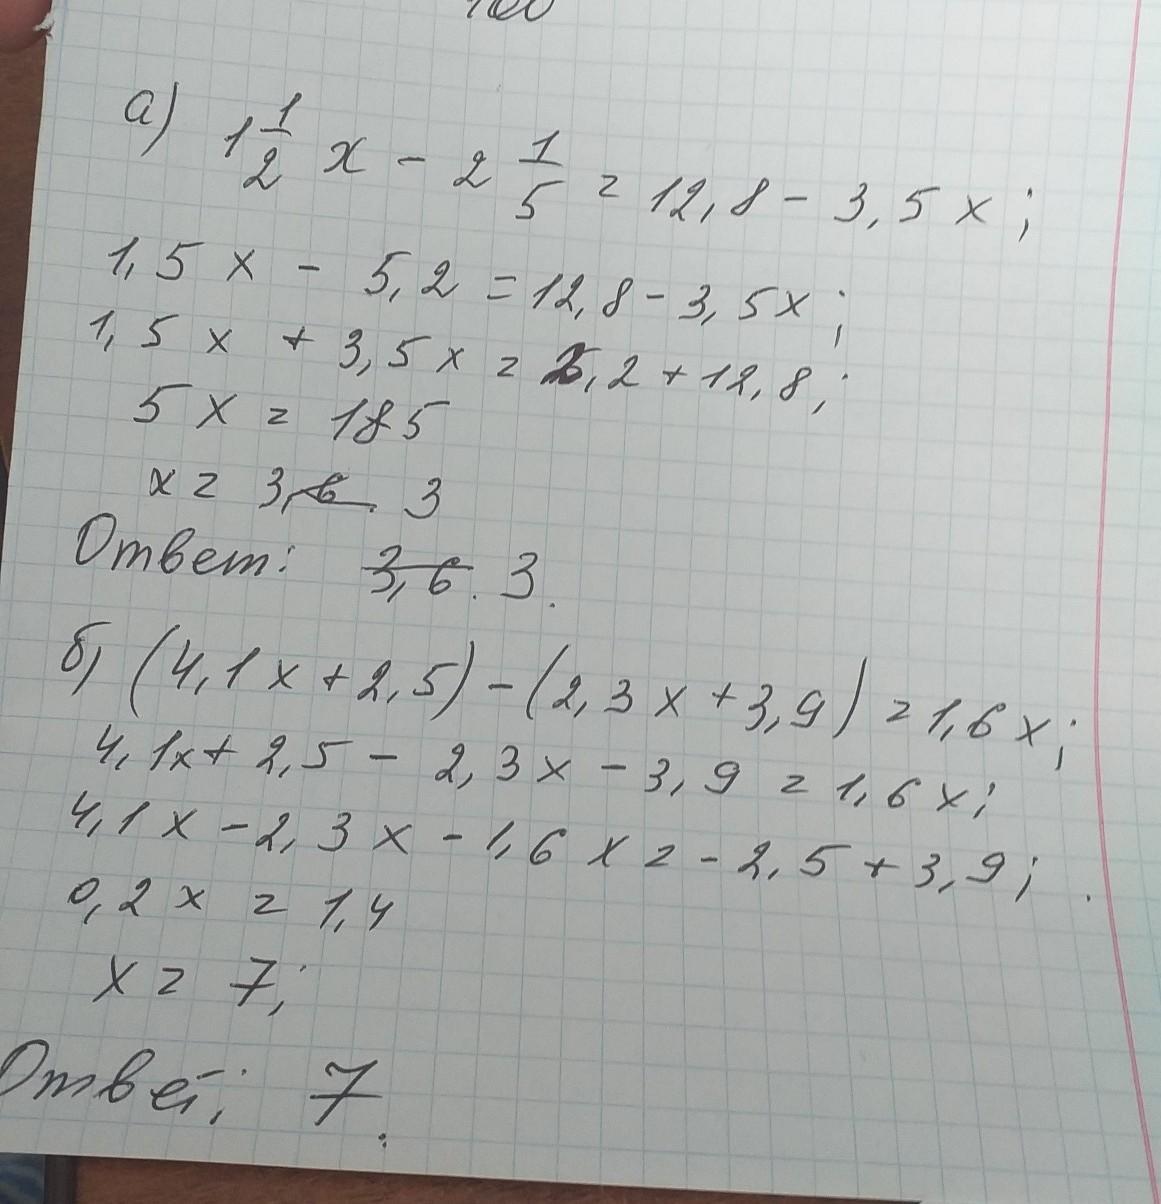 а) 1 1/2 x - 2 1/5 = 12,8 - 3,5x;
1,5x - 5,2 = 12,8 - 3,5x;
1,5x + 3,5x = 5,2 + 12,8;
5x = 185
x = 3,6. 3
Ответ: 3,6. 3.
б) (4,1x + 2,5) - (2,3x + 3,9) = 1,6x;
4,1x + 2,5 - 2,3x - 3,9 = 1,6x;
4,1x - 2,3x - 1,6x = -2,5 + 3,9;
0,2x = 1,4
x = 7;
Ответ: 7.